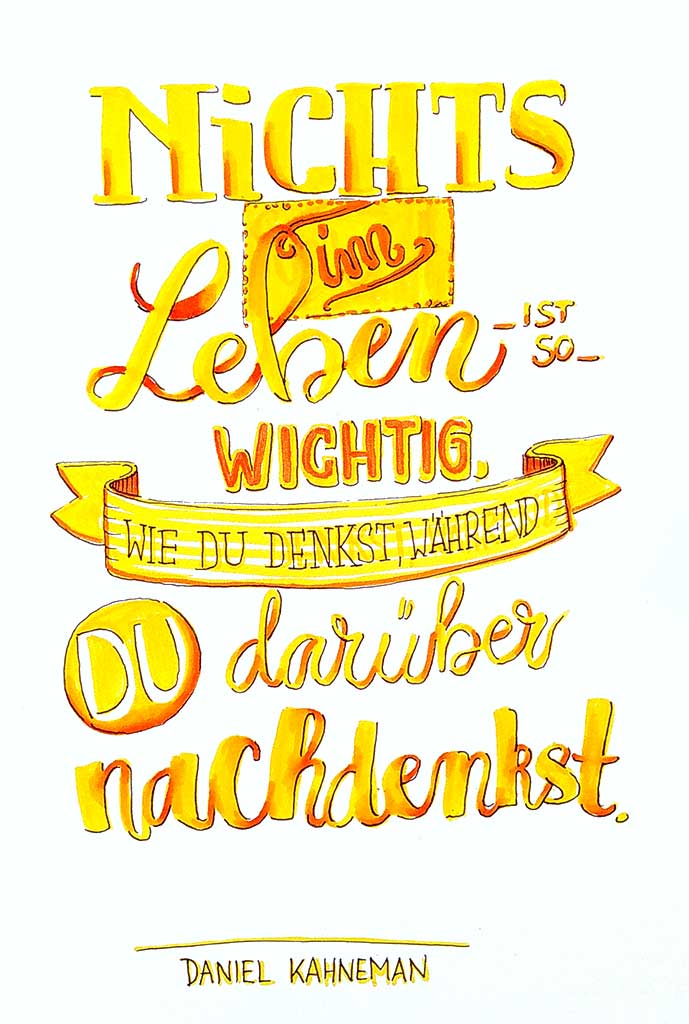 NiCHTS
im
Leben
- IST
SO -
WICHTIG.
WIE DU DENKST, WÄHREND
DU darüber
nachdenkst.
DANIEL KAHNEMAN